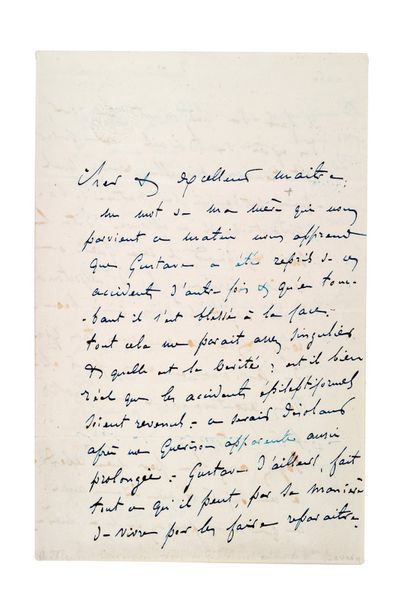 Cher & Excellent maitre.
un mot de ma mère qui nous
parvient ce matin nous apprend
que Gustave a été repris de ces
accidents d'autre fois & qu'en tom-
-bant il s'est blessé à la face.
tout cela me parait assez singulier
& quelle est la vérité ; est il bien
réel que les accidents épileptiformes
soient revenus - ce serait désolant
après une Guérison apparente aussi
prolongée - Gustave d'ailleurs, fait
tout ce qu'il peut, par sa manière
de vivre pour les faire reparaitre.